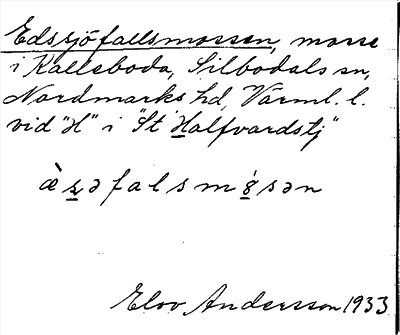 Edssjöfallsmossen, mosse
i Kalleboda, Silbodals sn,
Nordmarks hd, Värml. l.
vid "H" i "St Halfvardstj"
Elov Andersson 1933